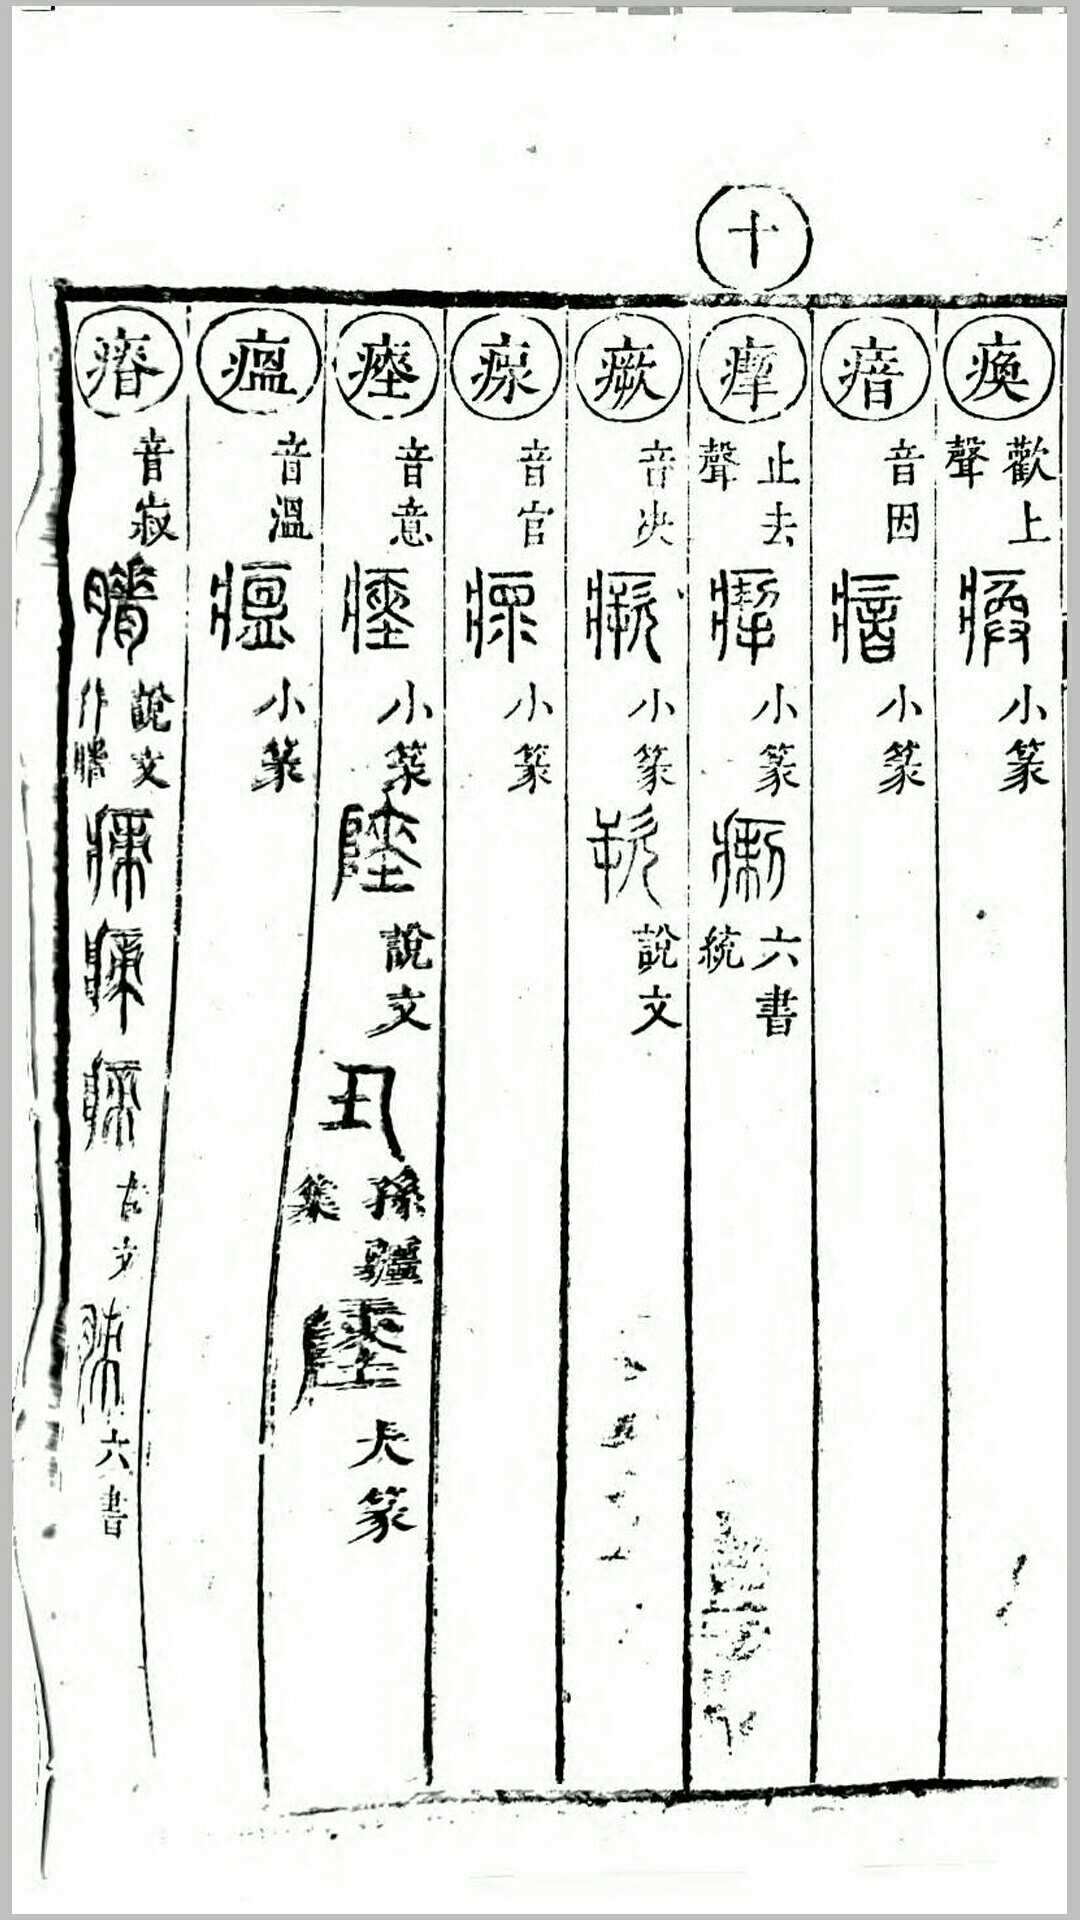 十
瘓 歡上聲 小篆
瘖 音因 小篆
瘳 止去聲 小篆 六書統
瘚 音决 小篆 說文
瘝 音官 小篆
瘞 音意 小篆 說文 孫彊集 大篆
瘟 音溫 小篆
音寂 說文作膌 古文 六書